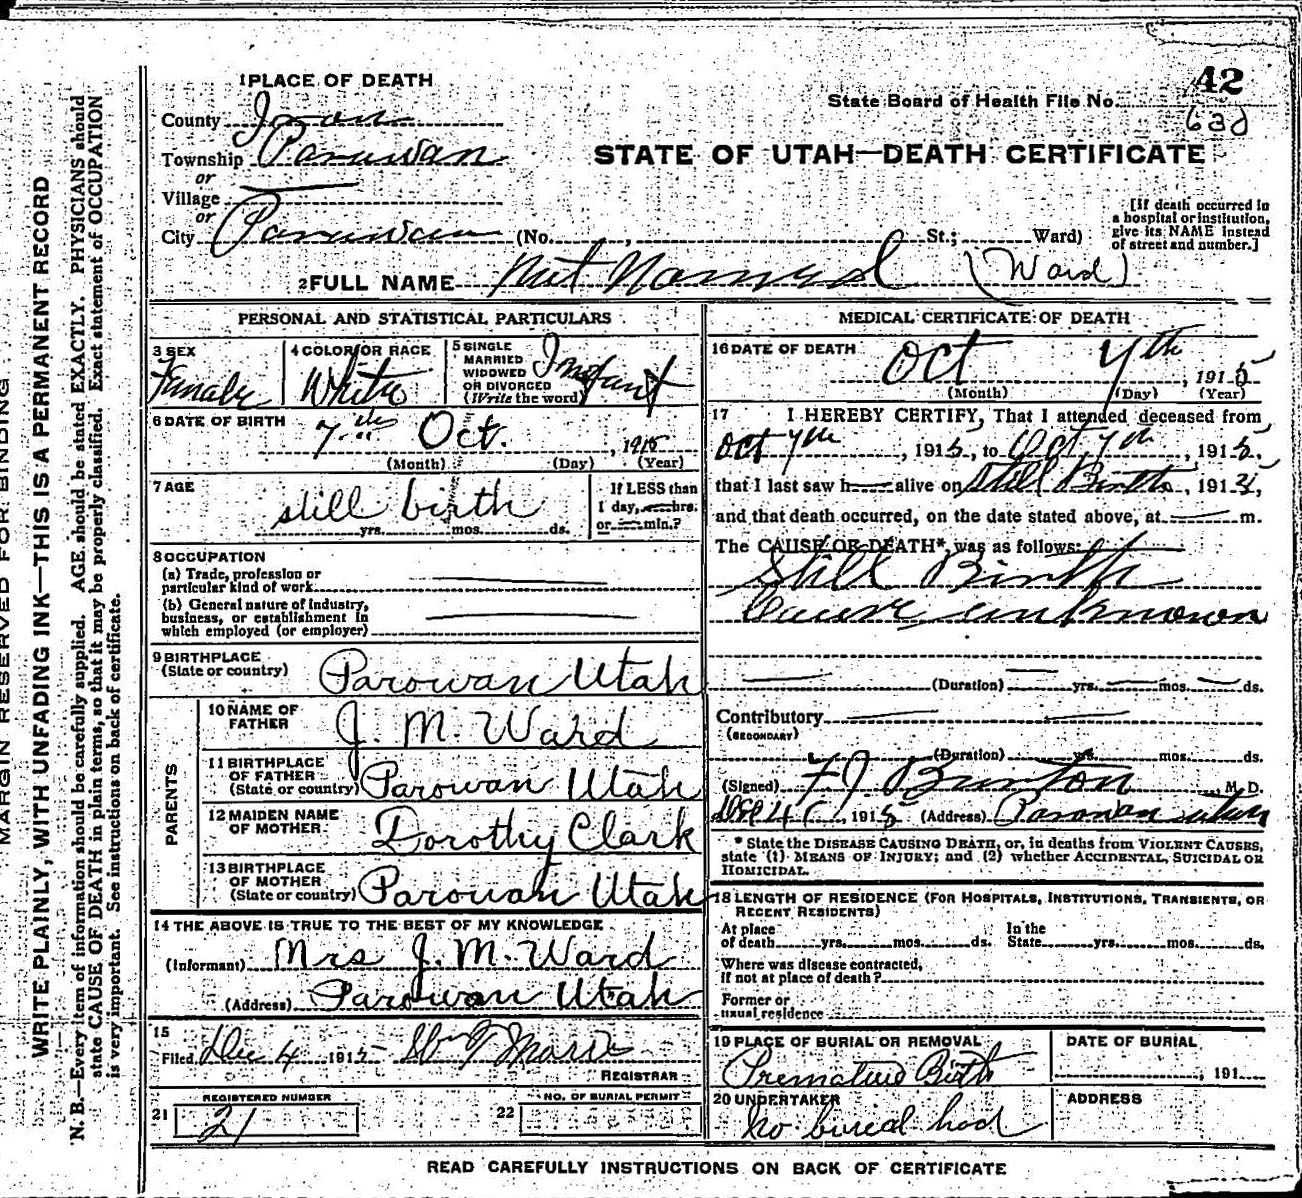 42
State Board of Health File No.
63d
STATE OF UTAH—DEATH CERTIFICATE
1 PLACE OF DEATH
County Iron
Township Parowan
or
Village
or
City Parowan (No. , St.; Ward)
[If death occurred in
a hospital or institution,
give its NAME instead
of street and number.]
2 FULL NAME Not Named (Ward)
PERSONAL AND STATISTICAL PARTICULARS
3 SEX
Female
4 COLOR OR RACE
White
5 SINGLE
MARRIED
WIDOWED
OR DIVORCED
(Write the word)
Infant
6 DATE OF BIRTH
7 Oct. , 1915
(Month) (Day) (Year)
7 AGE
still birth
yrs. mos. ds.
If LESS than
1 day, hrs.
or min.?
8 OCCUPATION
(a) Trade, profession or
particular kind of work
(b) General nature of industry,
business, or establishment in
which employed (or employer)
9 BIRTHPLACE
(State or country)
Parowan Utah
PARENTS
10 NAME OF
FATHER
J. M. Ward
11 BIRTHPLACE
OF FATHER
(State or country)
Parowan Utah
12 MAIDEN NAME
OF MOTHER
Dorothy Clark
13 BIRTHPLACE
OF MOTHER
(State or country)
Parowan Utah
14 THE ABOVE IS TRUE TO THE BEST OF MY KNOWLEDGE
(Informant) Mrs J. M. Ward
(Address) Parowan Utah
15
Filed Dec 4 1915
REGISTRAR
REGISTERED NUMBER
21 21
NO. OF BURIAL PERMIT
22
MEDICAL CERTIFICATE OF DEATH
16 DATE OF DEATH
Oct 7th , 1915
(Month) (Day) (Year)
17 I HEREBY CERTIFY, That I attended deceased from
Oct 7th , 1915, to Oct 7th , 1915,
that I last saw h alive on Still Birth , 1915,
and that death occurred, on the date stated above, at m.
The CAUSE OF DEATH*, was as follows:
Still Birth
Cause unknown
(Duration) yrs. mos. ds.
Contributory
(SECONDARY)
(Duration) yrs. mos. ds.
(Signed) Burton M. D.
Dec 4 , 1915 (Address) Parowan Utah
* State the DISEASE CAUSING DEATH, or, in deaths from VIOLENT CAUSES,
state (1) MEANS OF INJURY; and (2) whether ACCIDENTAL, SUICIDAL OR
HOMICIDAL.
18 LENGTH OF RESIDENCE (FOR HOSPITALS, INSTITUTIONS, TRANSIENTS, OR
RECENT RESIDENTS)
At place
of death yrs. mos. ds.
In the
State yrs. mos. ds.
Where was disease contracted,
if not at place of death?
Former or
usual residence
19 PLACE OF BURIAL OR REMOVAL
Premature Birth
DATE OF BURIAL
, 191
20 UNDERTAKER
No burial had
ADDRESS
READ CAREFULLY INSTRUCTIONS ON BACK OF CERTIFICATE
MARGIN RESERVED FOR BINDING
WRITE PLAINLY, WITH UNFADING INK—THIS IS A PERMANENT RECORD
N. B.—Every item of information should be carefully supplied. AGE should be stated EXACTLY. PHYSICIANS should
state CAUSE OF DEATH in plain terms, so that it may be properly classified. Exact statement of OCCUPATION
is very important. See instructions on back of certificate.